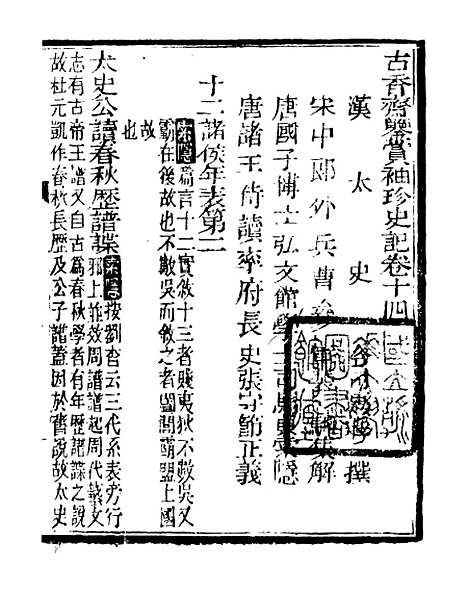 古香齋鑒賞袖珍史記卷十四
漢 太 史 撰
宋中郎外兵曹參 解
唐國子博士弘文館學士 隱
唐諸王侍讀率府長史張守節正義
十二諸侯年表第二
索隱篇言十二實敘十三者賤夷狄不數吳又
霸在後故也不數吳而敘之者闔閭霸盟上國
故
也
太史公讀春秋歷譜諜
索隱按劉杳云三代系表旁行
邪上並效周譜譜起周代蓺文
志有古帝王譜又自古爲春秋學者有年歷譜諜之說
故杜元凱作春秋長歷及公子譜蓋因於舊說故太史